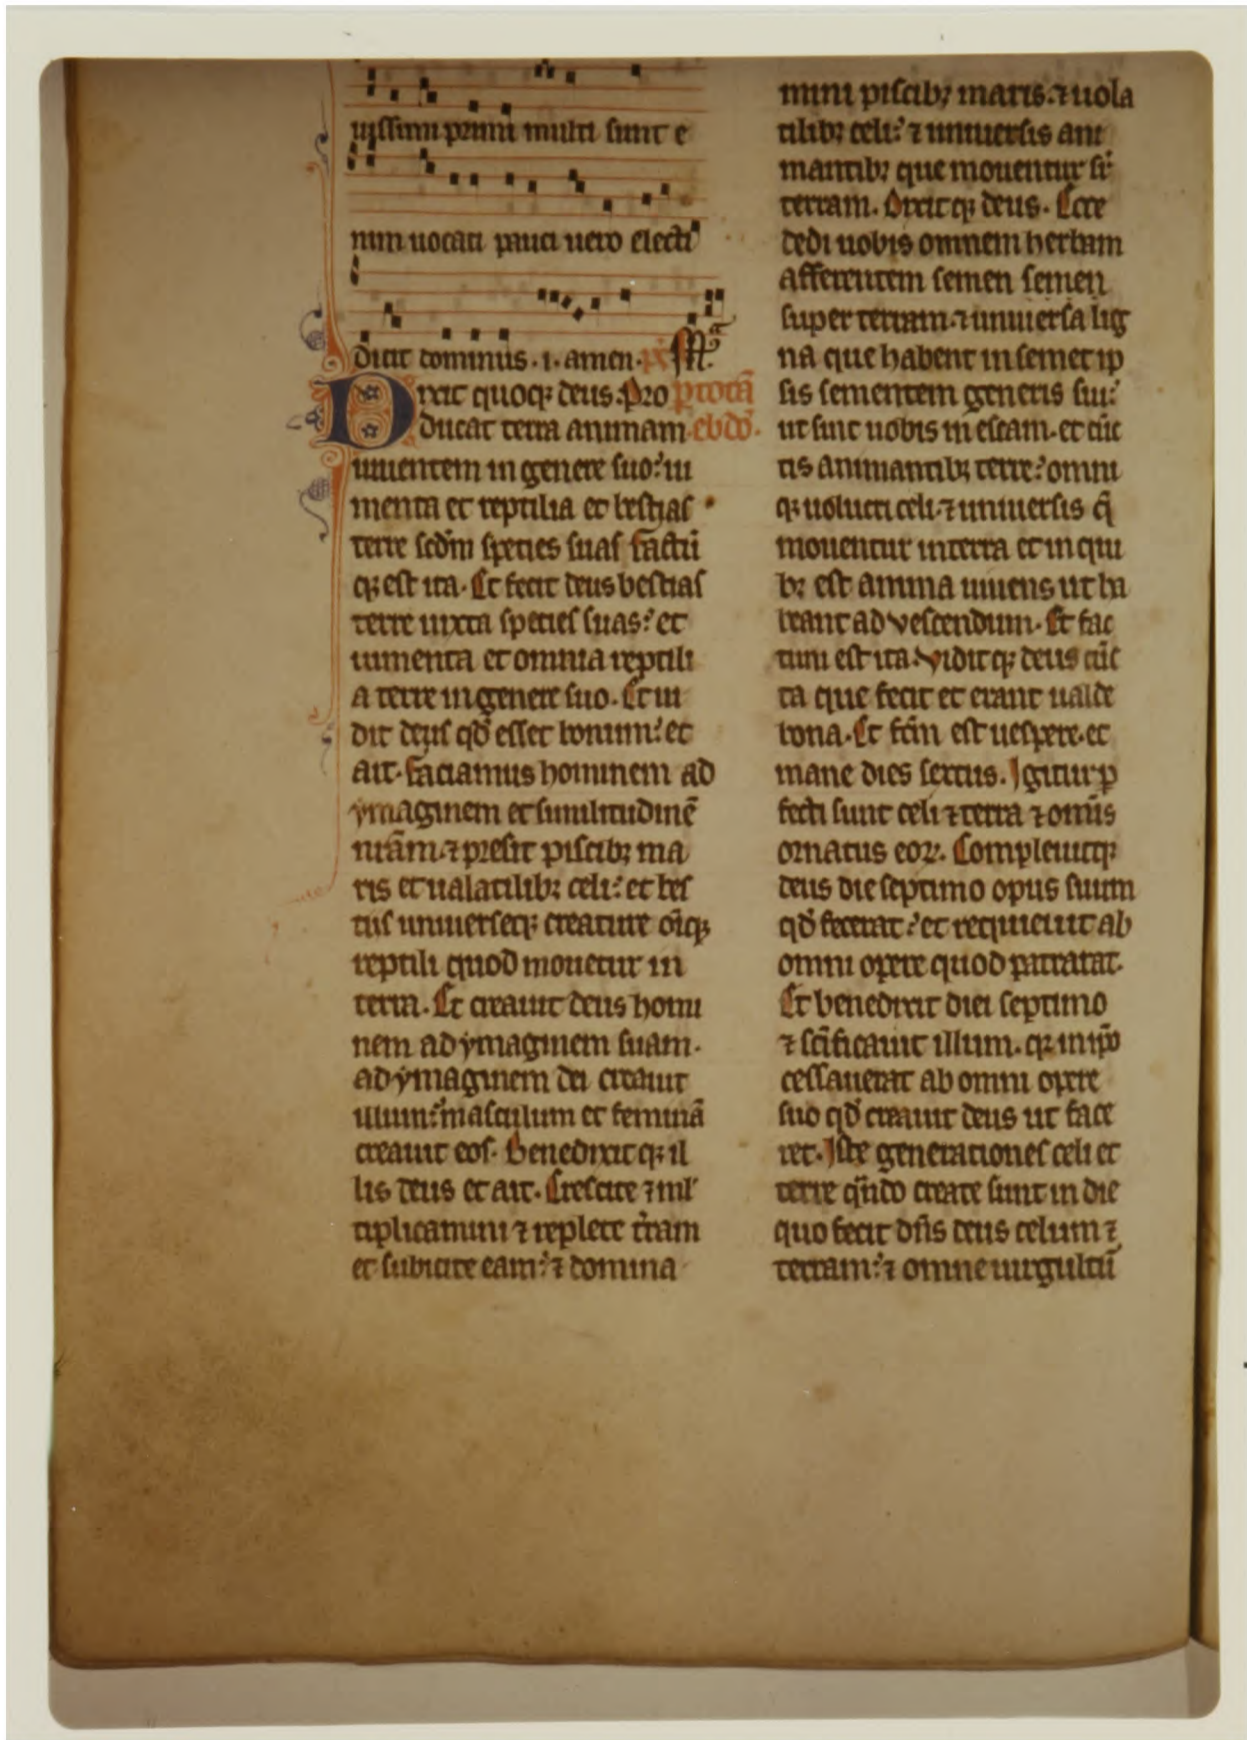 uissimi primi multi sunt e
nim uocati pauci uero electi
dicit dominus .i. amen. p̄s
Dixit quoqꝫ deus. Pro p totā
ducat terra animam ebdō.
uiuentem in genere suo: iu
menta et reptilia et bestias
terre scdm̄ species suas factū
qꝫ est ita. Et fecit deus bestias
terre iuxta species suas: et
iumenta et omnia reptili
a terre in genere suo. Et ui
dit deus qđ esset bonum: et
ait. faciamus hominem ad
ymaginem et similitudinē
nrām. ⁊ presit piscibꝫ ma
ris et ualatilibꝫ celi: et bes
tiis uniuerseqꝫ creature oīqꝫ
reptili quod mouetur in
terra. Et creauit deus homi
nem ad ymaginem suam.
ad ymaginem dei creauit
illum: masculum et feminā
creauit eos. Benedixitqꝫ il
lis deus et ait. Crescite ⁊ ml̄
tiplicamini ⁊ replete t̄ram
et subicite eam: ⁊ domina
mini piscibꝫ maris. ⁊ uola
tilibꝫ celi: ⁊ uniuersis ani
mantibꝫ que mouentur sr̄
terram. Dixitqꝫ deus. Ecce
dedi uobis omnem herbam
afferentem semen semen
super terram. ⁊ uniuersa lig
na que habent in semet ip
sis sementem generis sui:
ut sint uobis in escam. et cūc
tis animantibꝫ terre: omni
qꝫ uolucri celi. ⁊ uniuersis q̄
mouentur in terra et in qui
bꝫ est anima uiuens ut ha
beant ad vescendum. Et fac
tum est ita. Viditqꝫ deus cūc
ta que fecit et erant ualde
bona. Et fc̄m est uespere. et
mane dies sextus. Igitur ꝑ
fecti sunt celi ⁊ terra ⁊ omīs
ornatus eoꝝ. Compleuitqꝫ
deus die septimo opus suum
qđ fecerat: et requieuit ab
omni opere quod patrarat.
Et benedixit diei septimo
⁊ sc̄ificauit illum. qꝫ in ip̄o
cessauerat ab omni opere
suo qđ creauit deus ut face
ret. Iste generationes celi et
terre qn̄do create sunt in die
quo fecit dn̄s deus celum ⁊
terram: ⁊ omne uirgultū